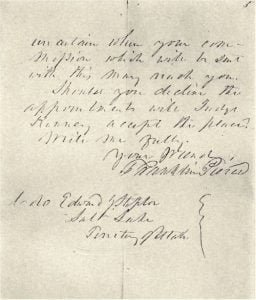 uncertain when your com-
mission which will be sent
with this may reach you.
Should you decline the
appointments will Judge
Kinney accept the place?
Write me fully.
Your friend,
Franklin Pierce
Edward J Steptoe
Salt Lake
Territory of Utah